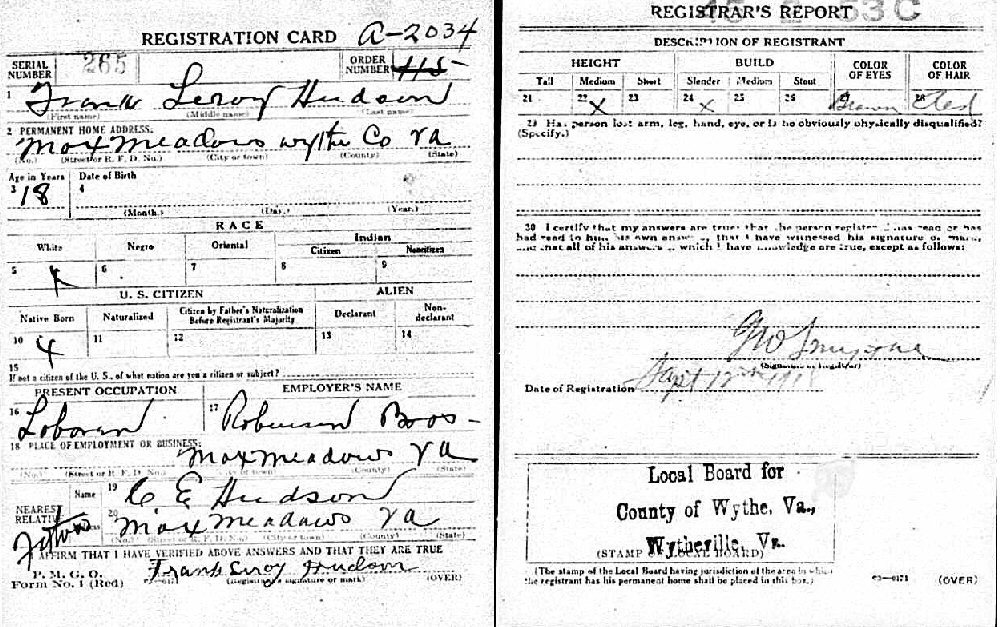 REGISTRATION CARD A-2034
SERIAL NUMBER 265 ORDER NUMBER 115
1 Frank Leroy Hudson
(First name) (Middle name) (Last name)
2 PERMANENT HOME ADDRESS:
Max meadows Wythe Co Va
(No.) (Street or R. F. D. No.) (City or town) (County) (State)
Age in Years Date of Birth
3 18 4
(Month.) (Day.) (Year.)
RACE
White Negro Oriental Indian
Citizen Noncitizen
5 X 6 7 8 9
U. S. CITIZEN ALIEN
Native Born Naturalized Citizen by Father's Naturalization Before Registrant's Majority Declarant Non-declarant
10 X 11 12 13 14
15
If not a citizen of the U. S., of what nation are you a citizen or subject?
PRESENT OCCUPATION EMPLOYER'S NAME
16 Laborer 17 Robinson Bros-
18 PLACE OF EMPLOYMENT OR BUSINESS:
Max meadows Va
(No.) (Street or R. F. D. No.) (City or town) (County) (State)
NEAREST RELATIVE Name 19 C E Hudson
Address 20 Max meadows Va
(No.) (Street or R. F. D. No.) (City or town) (County) (State)
Father
I AFFIRM THAT I HAVE VERIFIED ABOVE ANSWERS AND THAT THEY ARE TRUE
P. M. G. O.
Form No. 1 (Red) Frank Leroy Hudson
(Registrant's signature or mark) (OVER)
REGISTRAR'S REPORT
C
DESCRIPTION OF REGISTRANT
HEIGHT BUILD COLOR OF EYES COLOR OF HAIR
Tall Medium Short Slender Medium Stout
21 22 X 23 24 X 25 26 Brown 28 Red
29 Has person lost arm, leg, hand, eye, or is he obviously physically disqualified?
(Specify.)
30 I certify that my answers are true; that the person registered has read or has
had read to him his own answers; that I have witnessed his signature or mark;
and that all of his answers of which I have knowledge are true, except as follows:
(Signature of Registrar)
Date of Registration Sept 12th 1918
Local Board for
County of Wythe, Va.,
Wytheville, Va.
(STAMP OF LOCAL BOARD)
(The stamp of the Local Board having jurisdiction of the area in which
the registrant has his permanent home shall be placed in this box.)
(OVER)